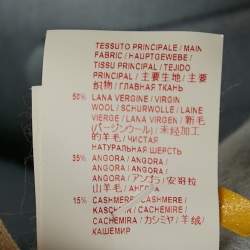 TESSUTO PRINCIPALE / MAIN
FABRIC / HAUPTGEWEBE /
TISSU PRINCIPAL / TEJIDO
PRINCIPAL / 主要生地 / 主要
织物 / ГЛАВНАЯ ТКАНЬ
50% LANA VERGINE / VIRGIN
WOOL / SCHURWOLLE / LAINE
VIERGE / LANA VIRGEN / 新毛
(バージンウール) / 未经加工
的羊毛 / ЧИСТАЯ
НАТУРАЛЬНАЯ ШЕРСТЬ
35% ANGORA / ANGORA /
ANGORA / ANGORA /
ANGORA / アンゴラ / 安哥拉
山羊毛 / АНГОРА
15% CASHMERE / CASHMERE /
KASCHMIR / CACHEMIRE /
CACHEMIRA / カシミヤ / 羊绒 /
КАШЕМИР